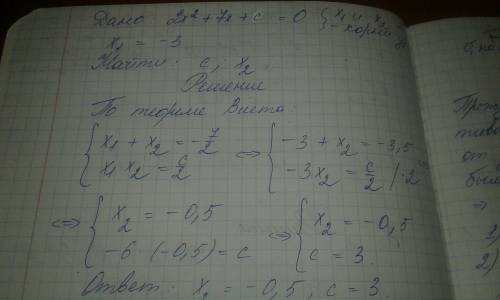 Дано 2x² + 7x + c = 0 { x₁ и x₂ - корни
x₁ = -3
Найти: c, x₂
Решение
По теореме Виета:
{ x₁ + x₂ = -7/2 <=> { -3 + x₂ = -3,5
x₁ x₂ = c/2 -3x₂ = c/2 |·2
<=> { x₂ = -0,5 <=> { x₂ = -0,5
-6 (-0,5) = c c = 3
Ответ: x₂ = -0,5, c = 3
от
был
=>
1)
2)